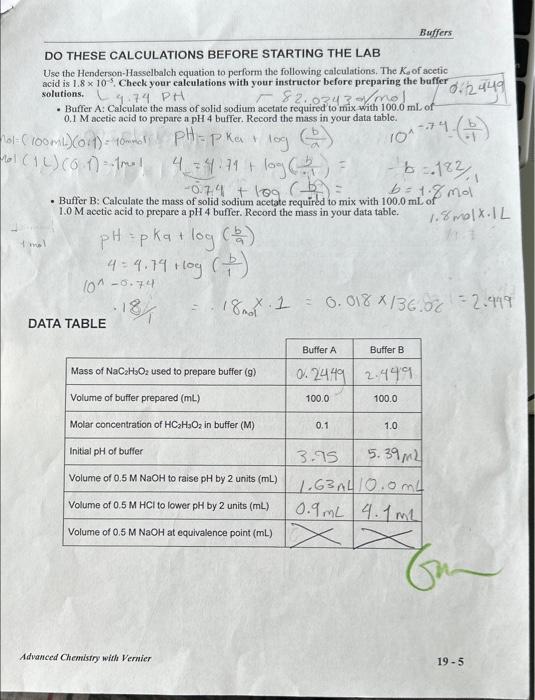 Buffers
DO THESE CALCULATIONS BEFORE STARTING THE LAB
Use the Henderson-Hasselbalch equation to perform the following calculations. The Ka of acetic
acid is 1.8 × 10⁻⁵. Check your calculations with your instructor before preparing the buffer
solutions.
4.74 PH
82.0343 g/mol
0.2449
• Buffer A: Calculate the mass of solid sodium acetate required to mix with 100.0 mL of
0.1 M acetic acid to prepare a pH 4 buffer. Record the mass in your data table.
(100mL)(0.1) = 10
PH = PKa + log (b/a)
10^-.74 (b/.1)
(1L)(0.1) = .1mol
4 = 4.74 + log (b/.1) =
b = .182/.1
-0.74 + log
b = 1.8 mol
• Buffer B: Calculate the mass of solid sodium acetate required to mix with 100.0 mL of
1.0 M acetic acid to prepare a pH 4 buffer. Record the mass in your data table.
1.8mol x .1L
1 mol
pH = pKa + log (b/a)
4 = 4.74 + log (b/1)
10^ -0.74
.18/1 = .18 mol x .1 = 0.018 x 136.08 = 2.449
DATA TABLE
Buffer A Buffer B
Mass of NaC₂H₃O₂ used to prepare buffer (g) 0.2449 2.449
Volume of buffer prepared (mL) 100.0 100.0
Molar concentration of HC₂H₃O₂ in buffer (M) 0.1 1.0
Initial pH of buffer 3.95 5.39 mL
Volume of 0.5 M NaOH to raise pH by 2 units (mL) 1.63mL 10.0mL
Volume of 0.5 M HCl to lower pH by 2 units (mL) 0.9mL 4.1mL
Volume of 0.5 M NaOH at equivalence point (mL)
Advanced Chemistry with Vernier
19 - 5